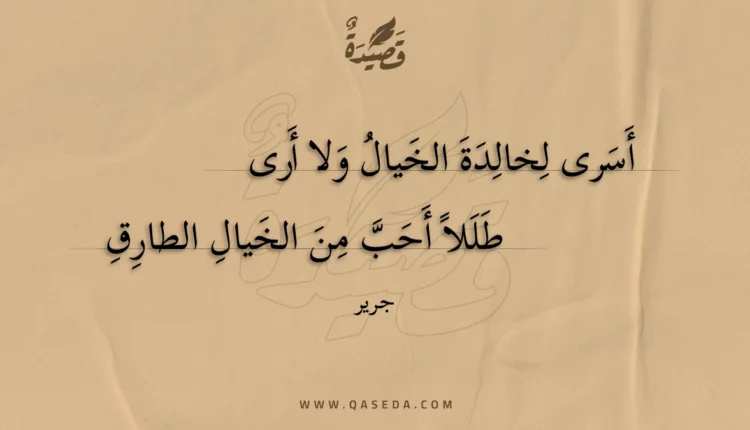 قَصِيدَةٌ
أَسَرى لِخالِدَةَ الخَيالُ وَلا أَرى
طَلَلاً أَحَبَّ مِنَ الخَيالِ الطارِقِ
جرير
WWW.QASEDA.COM